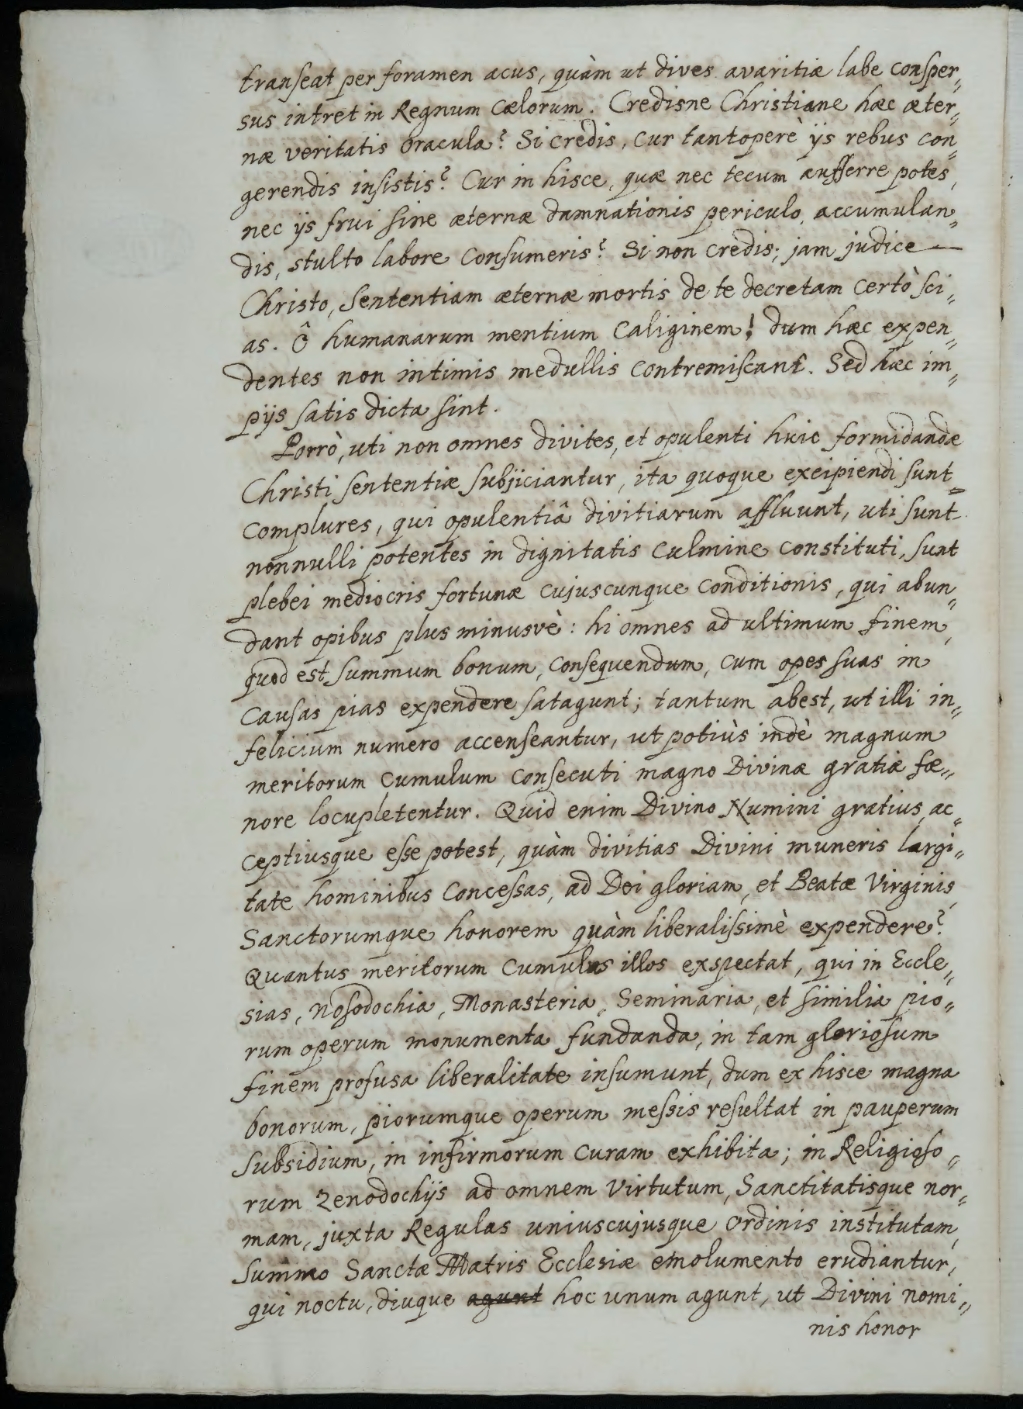 transeat per foramen acus, quàm ut dives avaritiæ labe consper„
sus intret in Regnum cælorum. Credisne Christiane hæc æter„
næ veritatis Oracula? Si credis, cur tantoperè ijs rebus con„
gerendis insistis? Cur in hisce, quæ nec tecum aufferre potes,
nec ijs frui sine æternæ damnationis periculo, accumulan„
dis, stulto labore consumeris? Si non credis; jam judice —
Christo, sententiam æternæ mortis de te decretam certò sci„
as. Ô humanarum mentium caliginem! dum hæc expen„
dentes non intimis medullis contremiscant. Sed hæc im„
pijs satis dicta sint.
Porrò, uti non omnes divites, et opulenti huic formidandæ
Christi sententiæ subjiciantur, ita quoque exeipiendi sunt
complures, qui opulentiâ divitiarum affluunt, uti sunt
nonnulli potentes in dignitatis culmine constituti, sunt
plebei mediocris fortunæ cujuscunque conditionis, qui abun„
dant opibus plus minusvè: hi omnes ad ultimum finem,
quod est summum bonum, consequendum, cum opes suas in
causas pias expendere satagunt; tantum abest, ut illi in„
felicium numero accenseantur, ut potiùs indè magnum
meritorum cumulum consecuti magno Divinæ gratiæ fæ„
nore locupletentur. Quid enim Divino Numini gratius, ac„
ceptiusque esse potest, quàm divitias Divini muneris largi„
tate hominibus concessas, ad Dei gloriam, et Beatæ Virginis,
Sanctorumque honorem quàm liberalissimè expendere?
Quantus meritorum cumulus illos exspectat, qui in Eccle„
sias, Nosodochia, Monasteria, Seminaria, et similia pio„
rum operum monumenta fundanda, in tam gloriosum
finem profusa liberalitate insumunt, dum ex hisce magna
bonorum, piorumque operum messis resultat in pauperum
subsidium, in infirmorum curam exhibita; in Religioso„
rum Zenodochijs ad omnem virtutum, Sanctitatisque nor„
mam, juxta Regulas uniuscujusque Ordinis institutam,
summo Sanctæ Matris Ecclesiæ emolumento erudiantur,
qui noctu, diuque agunt hoc unum agunt, ut Divini nomi„
nis honor